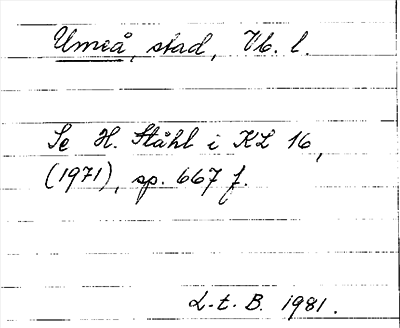 Umeå, stad, Vb. l.
Se H. Ståhl i KL 16,
(1971), sp. 667 f.
L.t. B. 1981.